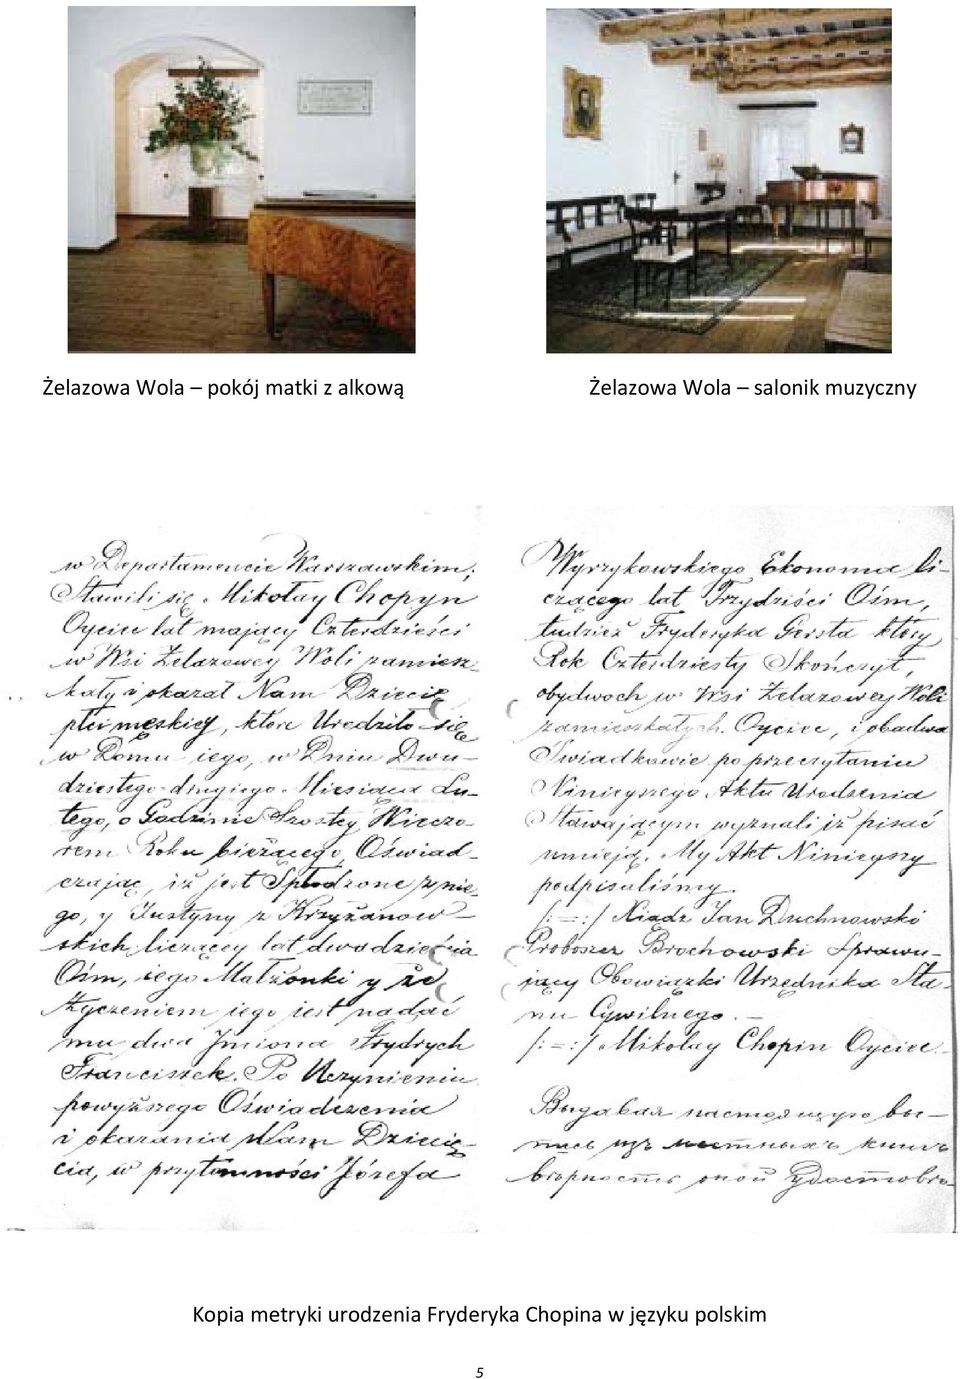 Żelazowa Wola – pokój matki z alkową
Żelazowa Wola – salonik muzyczny
w Departamencie Warszawskim;
Stawili się Mikołay Chopyn
Oyciec lat maiący Czterdzieści
w Wsi Żelazowey Woli zamiesz-
kały i okazał Nam Dziecię
płci męskiey, które Urodziło się
w Domu iego, w Dniu Dwu-
dziestego drugiego Miesiąca Lu-
tego, o Godzinie Szostey Wieczo-
rem Roku bieżącego, Oświad-
czając, iż jest Spłodzone z nie-
go, y Justyny z Krzyżanow-
skich liczącey lat dwadzieścia
Ośm, iego Małżonki y że
życzeniem iego jest nadać
mu dwa Jmiona Frydrych
Franciszek. Po Uczynieniu
powyższego Oświadczenia
i okazania Nam Dziecię-
cia, w przytomności Józefa
Wyrzykowskiego Ekonoma li-
czącego lat Trzydzieści Ośm,
tudzież Fryderyka Gersta który
Rok Czterdziesty Skończył,
obydwoch w Wsi Żelazowey Woli
zamieszkałych. Oyciec, i obadwa
Swiadkowie po przeczytaniu
Niniejszego Aktu Urodzenia
Stawającym wyznali iż pisać
umieją. My Akt Ninieyszy
podpisaliśmy.
/:=:/ Xiądz Jan Duchnowski
Proboszcz Brochowski Sprawu-
jący Obowiązki Urzędnika Sta-
nu Cywilnego. –
/:=:/ Mikołay Chopin Oyciec –
Выдавая настоящую вы-
пись изъ местныхъ книгъ
верность оной Удостове-
Kopia metryki urodzenia Fryderyka Chopina w języku polskim
5